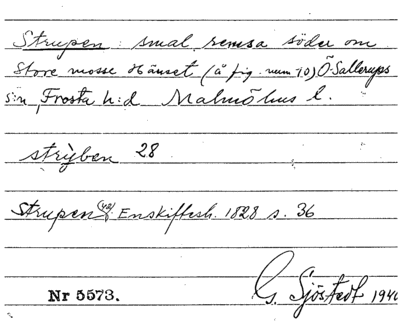 Strupen: smal remsa söder om
Store mosse Hänset (å fig. num 70) Ö. Sallerups
s:n, Frosta h:d Malmöhus l.
strỳben 28
Strupen Enskiftesh. 1828 s. 36
Nr 5573. G. Sjöstedt 1940